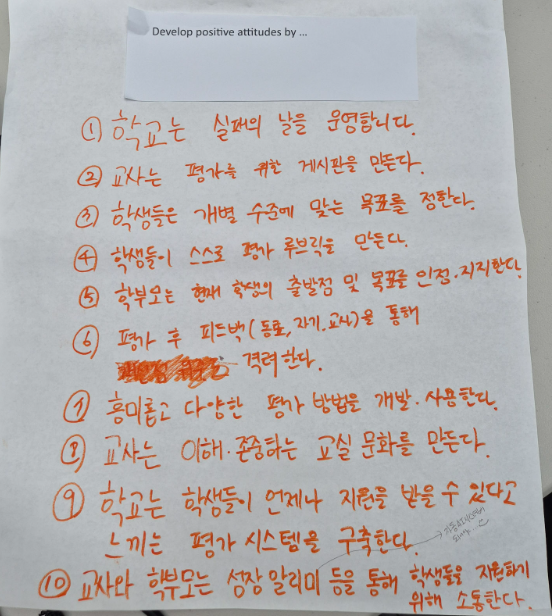 Develop positive attitudes by ...
① 학교는 실패의 날을 운영합니다.
② 교사는 평가를 위한 게시판을 만든다.
③ 학생들은 개별 수준에 맞는 목표를 정한다.
④ 학생들이 스스로 평가 루브릭을 만든다.
⑤ 학부모는 현재 학생의 출발점 및 목표를 인정·지지한다.
⑥ 평가 후 피드백(동료, 자기, 교사)을 통해
격려한다.
⑦ 흥미롭고 다양한 평가 방법을 개발·사용한다.
⑧ 교사는 이해·존중하는 교실 문화를 만든다.
⑨ 학교는 학생들이 언제나 지원을 받을 수 있다고
느끼는 평가 시스템을 구축한다.
⑩ 교사와 학부모는 성장 알리미 등을 통해 학생들을 지원하기
위해 소통한다.